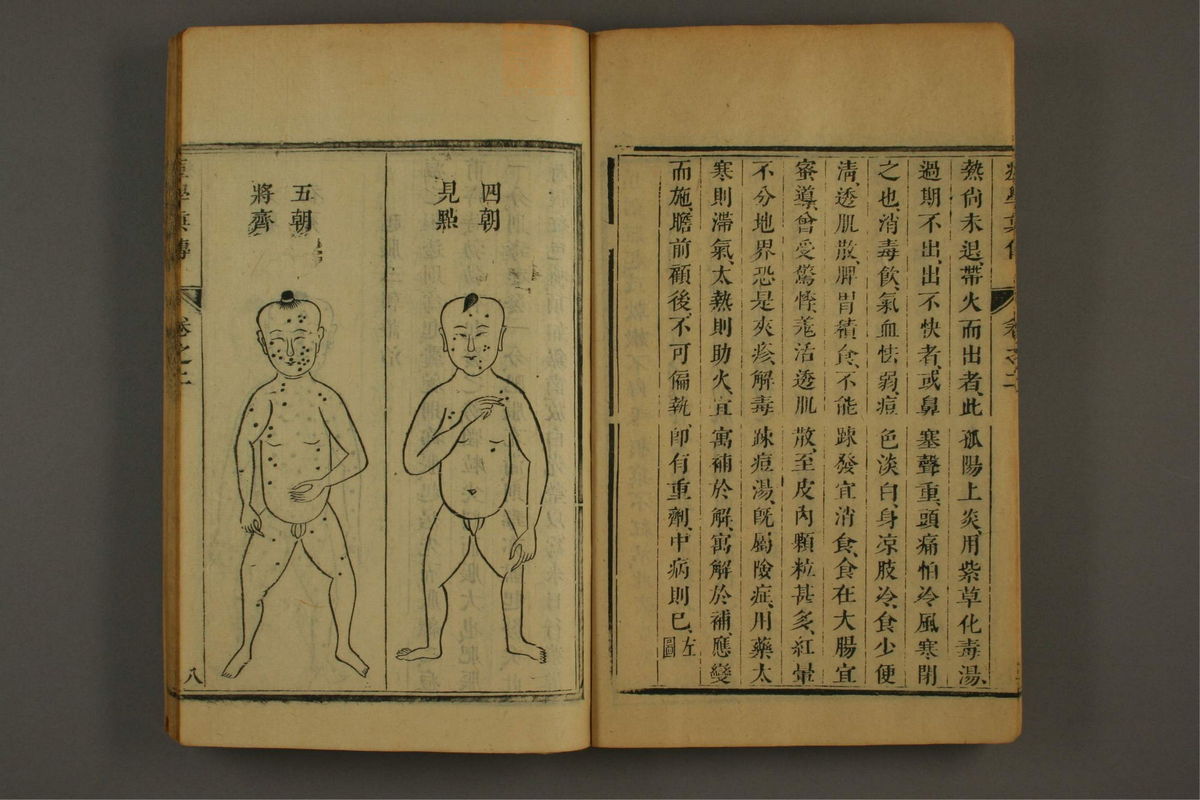 熱尙未退、帶火而出者、此孤陽上炎、用紫草化毒湯、
過期不出、出不快者、或鼻塞聲重、頭痛怕冷、風寒閉
之也、消毒飲、氣血怯弱、痘色淡白、身凉肢冷、食少便
淸、透肌散、脾胃積食、不能踈發、宜消食、食在大腸、宜
蜜導、曾受驚怪、羗活透肌散、至皮內顆粒甚多、紅暈
不分地界、恐是夾疹、解毒踈痘湯、旣屬險症、用藥太
寒則滯氣、太熱則助火、宜寓補於解、寓解於補、應變
而施、瞻前顧後、不可偏執、卽有重劑、中病則已、左圖
四朝
見點
五朝
將齊
卷之二
八